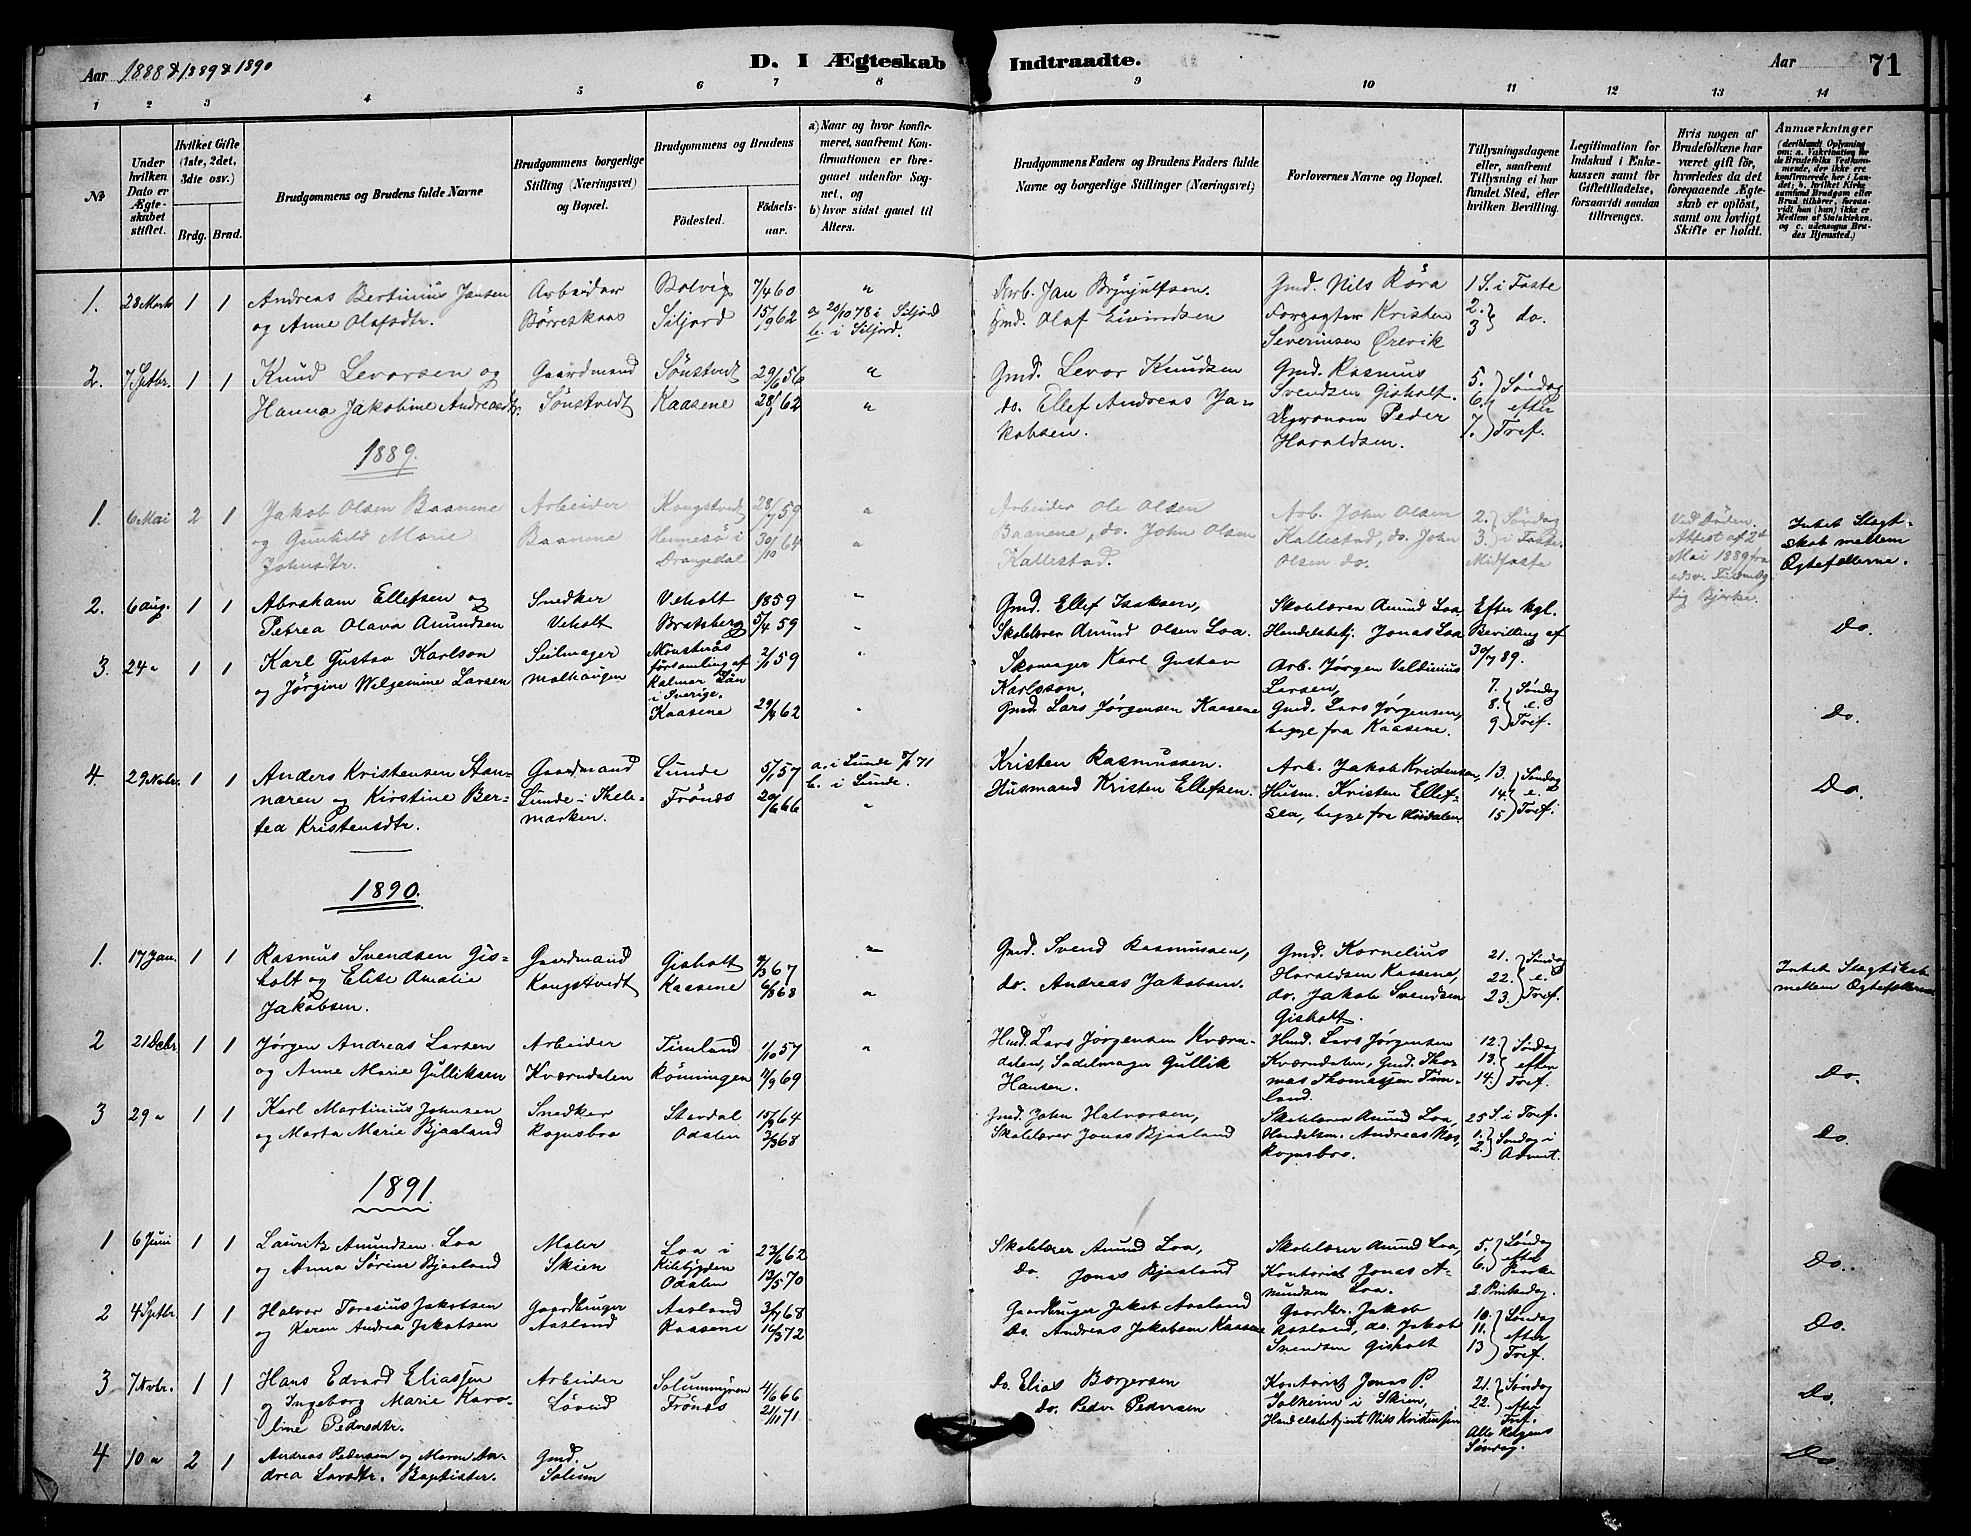 Aar 1888 & 1889 & 1890
D. I Ægteskab Indtraadte.
Aar 71
1 2 3 4 5 6 7 8 9 10 11 12 13 14
№
Under hvilken Dato er Ægteskabet stiftet.
Hvilket Gifte (1ste, 2det, 3die osv.)
Brdg. Brud.
Brudgommens og Brudens fulde Navne
Brudgommens borgerlige Stilling (Næringsvei) og Bopæl.
Brudgommens og Brudens
Födested. Födselsaar.
a) Naar og hvor konfirmeret, saafremt Konfirmationen er foregaaet udenfor Sognet, og
b) hvor sidst gaaet til Alters.
Brudgommens Faders og Brudens Faders fulde Navne og borgerlige Stillinger (Næringsvei)
Forlovernes Navne og Bopæl.
Tillysningsdagene eller, saafremt Tillysning ei har fundet Sted, efter hvilken Bevilling.
Legitimation for Indskud i Enkekassen samt for Giftetilladelse, forsaavidt saadan tiltrænges.
Hvis nogen af Brudefolkene har været gift för, hvorledes da det foregaaende Ægteskab er oplöst, samt om lovligt Skifte er holdt.
Anmærkninger
1. 28 Marts 1 1 Andreas Bertinius Jansen Arbeider Bolvig 7/4 60 " Arb. Jan Brynjulfsen. Gmd. Nils Röra 1 S. i Faste
og Anne Olafsdtr. Börreskaas Siljord 15/9 62 a 20/10 78 i Siljord Gmd. Olaf Eivindsen Forpagter Kristen 2. 3 } do.
b. i Siljord. Severinsen Ørevik
2. 7 Septbr. 1 1 Knud Levorsen og Gaardmand Sönstvedt 29/6 56 " Gmd. Levor Knudsen Gmd. Rasmus 5. } Söndag
Hanna Jakobine Andreasdtr. Sönstvedt Kaasene 28/1 62 " do. Ellef Andreas Ja- Svendsen Gisholt. 6. } efter
kobsen. Peder 7. } Tref.
Haraldsen.
1889.
1. 6 Mai 2 1 Jakob Olsen Baanene Arbeider Kongstvedt 28/7 59 " Arbeider Ole Olsen Arb. John Olsen 2. } Söndag Ved Döden. Intet Slægt-
og Gunhild Marie Baanene Hennesö i 30/10 64 " Baanene, do. John Olsen Kallestad, do. John 3. } i Faste. Attest af 2den skab mellem
Johnsdtr. Drangedal Kallestad. Olsen do. Midfaste Mai 1889 fra Ægtefællerne.
Bjerke.
2. 6 Aug. 1 1 Abraham Ellefsen og Snedker Veholt 1859 " Gmd. Ellef Isaksen, Skolelærer Amund Loa Efter kgl.
Petrea Olava Amundsen Veholt Bratsberg 5/4 59 " Skolelærer Amund Olsen Loa. Handelsbetj. Jonas Loa Bevilling af Do.
30/7 89.
3. 24 " 1 1 Karl Gustav Karlson Seilmager Mönsterås 2/1 59 " Skomager Karl Gustav Arb. Jörgen Veldinius 7. } Söndag
og Jörgine Wilgemine Larsen Malhaugen församling af Karlsson. Larsen, 8. } e.
Kalmar Län
i Sverige.
Kaasene 29/4 62 " Gmd. Lars Jörgensen Kaasene Gmd. Lars Jörgensen, 9 } Tref. Do.
begge fra Kaasene.
4. 29 Novbr. 1 1 Anders Kristensen Stan- Gaardmand Lunde 5/1 57 a. i Lunde 71 Kristen Rasmussen. Arb. Jakob Kristensen, 13. } Söndag
naren og Kirstine Ber- Lunde i Thele- Frönes 20/6 66 b. i Lunde. Husmand Kristen Ellefsen. Husm. Kristen Ellef- 14. } e. Do.
tea Kristensdtr. marken. " sen, begge fra 15 } Tref.
1890.
1. 17 Jan. 1 1 Rasmus Svendsen Gis- Gaardmand Gisholt 67 " Gmd. Svend Rasmussen, Gmd. Kornelius 21. } Söndag Intet Slægtskab
holt og Elise Amalie Kongstvedt Kaasene 6/3 68 " do. Andreas Jakobsen. Haraldsen Kaasene, 22. } e. mellem Ægtefællerne
Jakobsen. do. Jakob Svendsen 23. } Tref.
Gisholt.
2 21 Debr 1 1 Jörgen Andreas Larsen Arbeider Timland 1/10 57 " Hmd. Lars Jörgensen Kværn- Hmd. Lars Jörgensen 12. } Söndag
og Anne Marie Gulliksen Kværndalen Rönningen 11/9 69 dalen, Sadelmager Gullik Kværndalen, Gmd. Tho- 13. } efter Do.
Hansen. mas Thomassen Tim- 14. } Tref.
land.
3 29 " 1 1 Karl Martinius Johnsen Snedker Stordal 64 Gmd. John Halvorsen, Skolelærer Amund Loa, 25 S. i Tref.
og Marta Marie Bjaaland Rognsbro Odalen 3/3 68 Skolelærer Jonas Bjaaland Handelsm. Andreas Næs, 1. } Söndag i Do.
Rognsbro. 2. } Advent.
1891.
1 6 Juni 1 1 Lauritz Amundsen Loa Maler Loa i 23/6 62 Skolelærer Amund Loa, Skolelærer Amund Loa, 5. } Söndag
og Anna Sörine Bjaaland Skien Kilebygden Do. Jonas Bjaaland Kontorist Jonas A- 6. } efter Paaske Do.
Odalen 13/5 70 mundsen Loa. 2 Pintsedag.
2 4 Septbr. 1 1 Halvor Toresius Jakobsen Gaardbruger Aasland 3/7 68 Gaardbruger Jakob Aasland Gaardbr. Jakob 10. } Söndag
og Karen Andrea Jakobsen Aasland Kaasene 16/3 72 Do. Andreas Jakobsen Kaasene Aasland, do. Jakob 11. } efter Do.
Svendsen Gisholt 13 } Tref.
3 7 Novbr. 1 1 Hans Edvard Eliassen Arbeider Solummyren 4/6 66 Do. Elias Borgersen Kontorist Jonas P. 21. } Söndag
og Ingeborg Marie Karo- Lövud Frönes 21/11 71 Do. Peder Pedersen i Skien, 22. } efter Do.
line Pedersdtr. Handelsbetjent Nils Kristensen Tref.
Alle Helgens
Söndag.
4 10 " 2 1 Andreas Pedersen og Maren An- Gmd. Do.
drea Larsdtr. Baptister. Solum